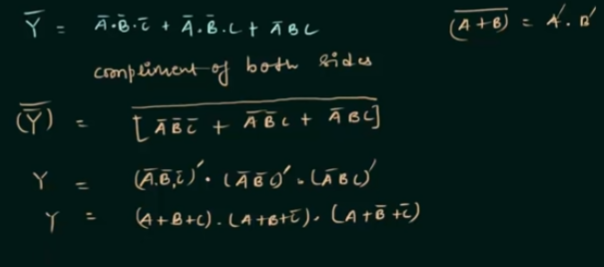 Y̅ = A̅·B̅·C̅ + A̅·B̅·C + A̅BC
(A+B)̅ = A′·B′
compliment of both sides
(Y̅)̅ = [A̅B̅C̅ + A̅B̅C + A̅BC]̅
Y = (A̅.B̅.C̅)′ · (A̅B̅C)′ · (A̅BC)′
Y = (A+B+C) . (A+B+C̅) . (A+B̅+C̅)